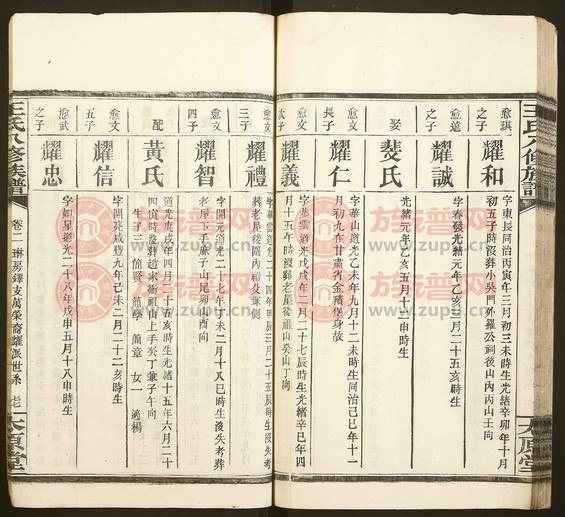 王氏八修族譜
太原堂
愈琪
之子
耀和
字東長同治丙寅年三月初三未時生光緒辛卯年十月
初五子時沒葬小吳門外羅公祠後山內丙山壬向
愈遠
之子
耀誠
字春發光緒元年乙亥三月二十五亥時生
娶
裴氏
光緒元年乙亥五月十二申時生
愈文
長子
耀仁
字華山道光乙未年九月十二未時生同治己巳年十一
月初九在甘肅省金積堡身故
愈文
次子
耀義
雲道光戊戌年二月二十七辰時生光緒辛巳年四
月十五午時沒葬老屋後祖山癸山丁向
愈文
三子
耀禮
字華雲道光二十四年
葬老屋後圍內
愈文
四子
耀智
字開元道光二十七年丁未二月十八巳時生沒失考葬
老屋上手麻子山尾卯山酉向
配
黃氏
道光庚戌年四月二十五亥時生光緒十五年六月二十
四寅時沒葬趙家衝祖山上手癸丁兼子午向
生子三 簡賢 簡學 簡章 女一 適楊
愈文
五子
耀信
字開亮咸豐九年己未二月二十二亥時生
愈武
之子
耀忠
字如星道光二十八年戊申五月十八申時生
王氏八修族譜
卷二
太原堂
族譜網
www.zupu.cn